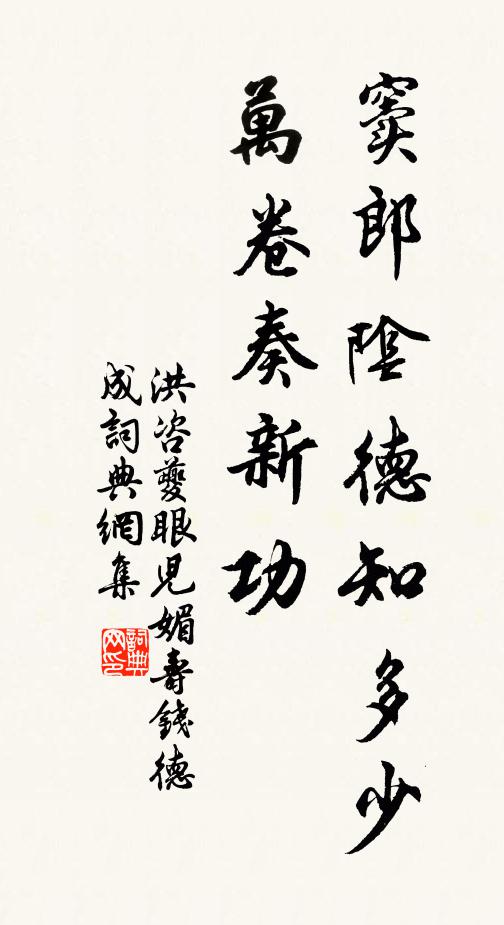 窦郎陰德知多少
萬卷奏新功
洪咨夔眼兒媚壽錢德
成詞典網集
詞典
网印